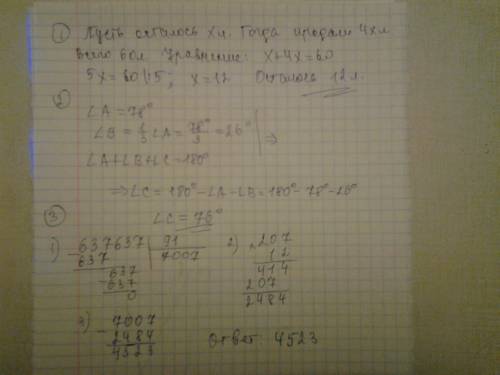 ① Пусть осталось x л. Тогда продали 4x л
всего 60 л. Уравнение: x+4x=60
5x=60|:5; x=12 Осталось 12 л.
②
∠A=78°
∠B=1/3∠A=78°/3=26° ⇒
∠A+∠B+∠C=180°
⇒∠C=180°-∠A-∠B=180°-78°-26°
∠C=76°
③
1) 637637 | 91
637 7007
637
-637
0
2) 207
12
414
207
2484
3) 7007
- 2484
4523
Ответ: 4523